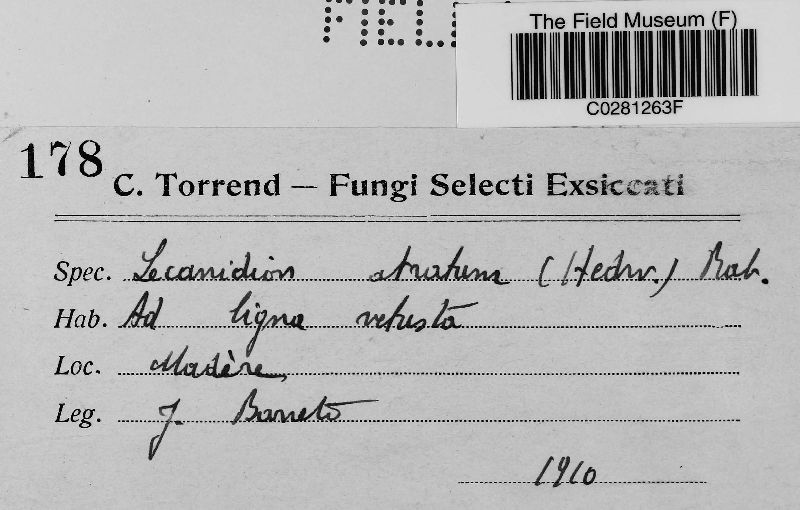 FIEL
The Field Museum (F)
C0281263F
178
C. Torrend — Fungi Selecti Exsiccati
Spec. Lecanidion atratum (Hedw.) Rab.
Hab. Ad ligna vetusta
Loc. Madère,
Leg. J. Barreto
1910